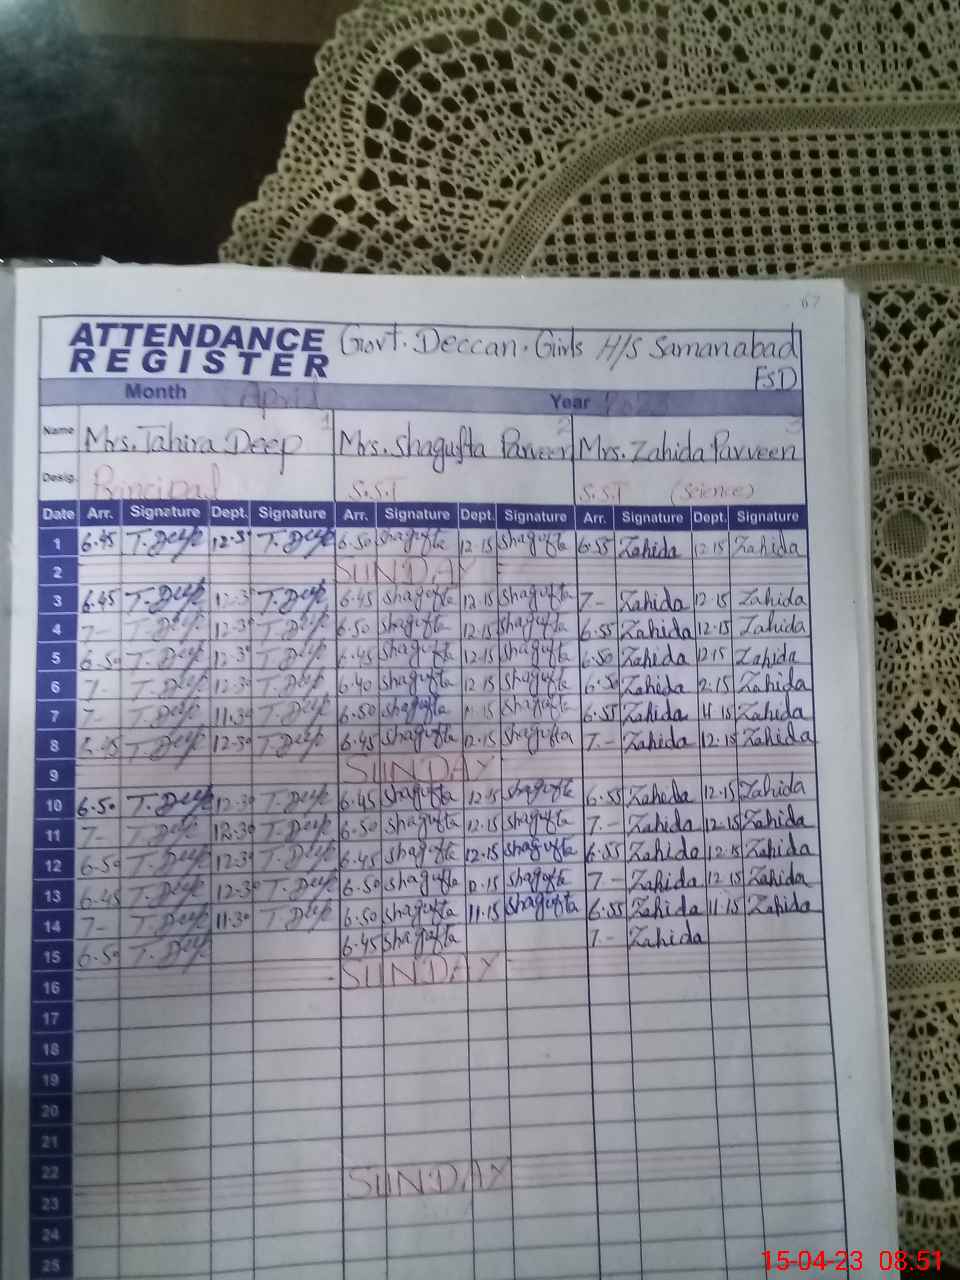 67
ATTENDANCE REGISTER Govt. Deccan. Girls H/S Samanabad
FSD
Month April Year 2023
1 2 3
Name Mrs. Tahira Deep Mrs. Shagufta Parveen Mrs. Zahida Parveen
Desig. Principal S.S.T S.S.T (Science)
Date Arr. Signature Dept. Signature Arr. Signature Dept. Signature Arr. Signature Dept. Signature
1 6.45 T. Deep 12.30 T. Deep 6.50 Shagufta 12.15 Shagufta 6.55 Zahida 12.15 Zahida
2 SUNDAY
3 6.45 T. Deep 12.30 T. Deep 6.45 Shagufta 12.15 Shagufta 7.- Zahida 12.15 Zahida
4 7- T. Deep 12.30 T. Deep 6.50 Shagufta 12.15 Shagufta 6.55 Zahida 12.15 Zahida
5 6.50 T. Deep 12.30 T. Deep 6.45 Shagufta 12.15 Shagufta 6.50 Zahida 12.15 Zahida
6 7- T. Deep 12.30 T. Deep 6.40 Shagufta 12.15 Shagufta 6.50 Zahida 12.15 Zahida
7 7- T. Deep 11.30 T. Deep 6.50 Shagufta 15 Shagufta 6.55 Zahida 11.15 Zahida
8 6.45 T. Deep 12.30 T. Deep 6.45 Shagufta 12.15 Shagufta 7.- Zahida 12.15 Zahida
9 SUNDAY
10 6.50 T. Deep 12.30 T. Deep 6.45 Shagufta 12.15 Shagufta 6.55 Zahida 12.15 Zahida
11 7- T. Deep 12.30 T. Deep 6.50 Shagufta 12.15 Shagufta 7.- Zahida 12.15 Zahida
12 6.50 T. Deep 12.30 T. Deep 6.45 Shagufta 12.15 Shagufta 6.55 Zahida 12.15 Zahida
13 6.45 T. Deep 12.30 T. Deep 6.50 Shagufta 12.15 Shagufta 7.- Zahida 12.15 Zahida
14 7- T. Deep 11.30 T. Deep 6.50 Shagufta 11.15 Shagufta 6.55 Zahida 11.15 Zahida
15 6.50 T. Deep 6.45 Shagufta 7.- Zahida
16 SUNDAY
17
18
19
20
21
22
23 SUNDAY
24
25
15-04-23 08:51